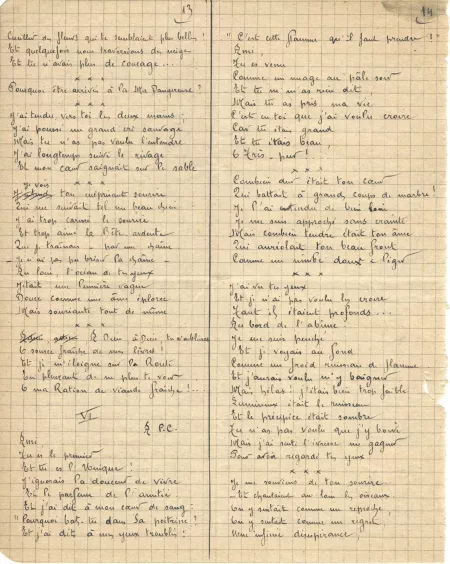 13
Cueillir des fleurs qui te semblaient plus belles !
Et quelquefois nous traversions du neige
Et tu n'avais plus de courage...
* * *
Pourquoi être arrivés à la Ma Dangereuse ?
* * *
J'ai tendu vers toi les deux mains ;
J'ai poussé un grand cri sauvage
Mais tu n'as pas voulu l'entendre
J'ai longtemps suivi le rivage
Et mon cœur saignait sur le sable
* * *
Je vois
ton méprisant sourire
Qui me suivait tel un beau chien
J'ai trop caressé le sourire
Et trop aimé la Bête ardente
Que je traînais par une chaîne
Je n'ai pas pu briser la chaîne
Au loin, l'océan de tes yeux
N'était une lumière vague
Douce comme une âme éplorée
Mais souriante tout de même
* * *
À Dieu, à Dieu, tu n'oublieras
O source fraîche de mes lèvres
Et je m'éloigne sur la Route
En pleurant de ne plus te voir
O ma Ration de viande fraîche !...
VI
À P.C.
Ami
Tu es le premier
Et tu es l'Unique !
J'ignorais la douceur de vivre
Et le parfum de l'amitié
Et j'ai dit à mon cœur de sang
" Pourquoi bats-tu dans la poitrine ?
Et j'ai dit à mes yeux troublés :
14
" C'est cette flamme qu'il faut prendre ! "
Ami,
Tu es venu
Comme un nuage au pâle soir
Et tu ne m'as rien dit
Mais tu as pris ma vie
C'est en toi que j'ai voulu croire
Car tu étais grand
Et tu étais beau,
O Très-pur !
* * *
Combien dur était ton cœur
Qui battait à grands coups de marbre !
Je l'ai entendu de bien loin
Je me suis approché sans crainte
Mais combien tendre était ton âme
Qui auréolait ton beau front
Comme un nimbe doux et léger
* * *
J'ai vu tes yeux
Et je n'ai pas voulu les croire
Tant ils étaient profonds...
Au bord de l'abîme
Je me suis penché
Et je voyais au fond
Comme un froid ruisseau de flamme
Et j'aurais voulu m'y baigner
Mais hélas ! j'étais bien trop faible
Lumineux était le ruisseau
Et le précipice était sombre
Tu n'as pas voulu que j'y boive
Mais j'ai senti l'ivresse me gagner
Pour avoir regardé tes yeux
* * *
Je me souviens de ton sourire
Et chantaient au loin les oiseaux
On y sentait comme un reproche,
On y sentait comme un regret,
Une infinie désespérance